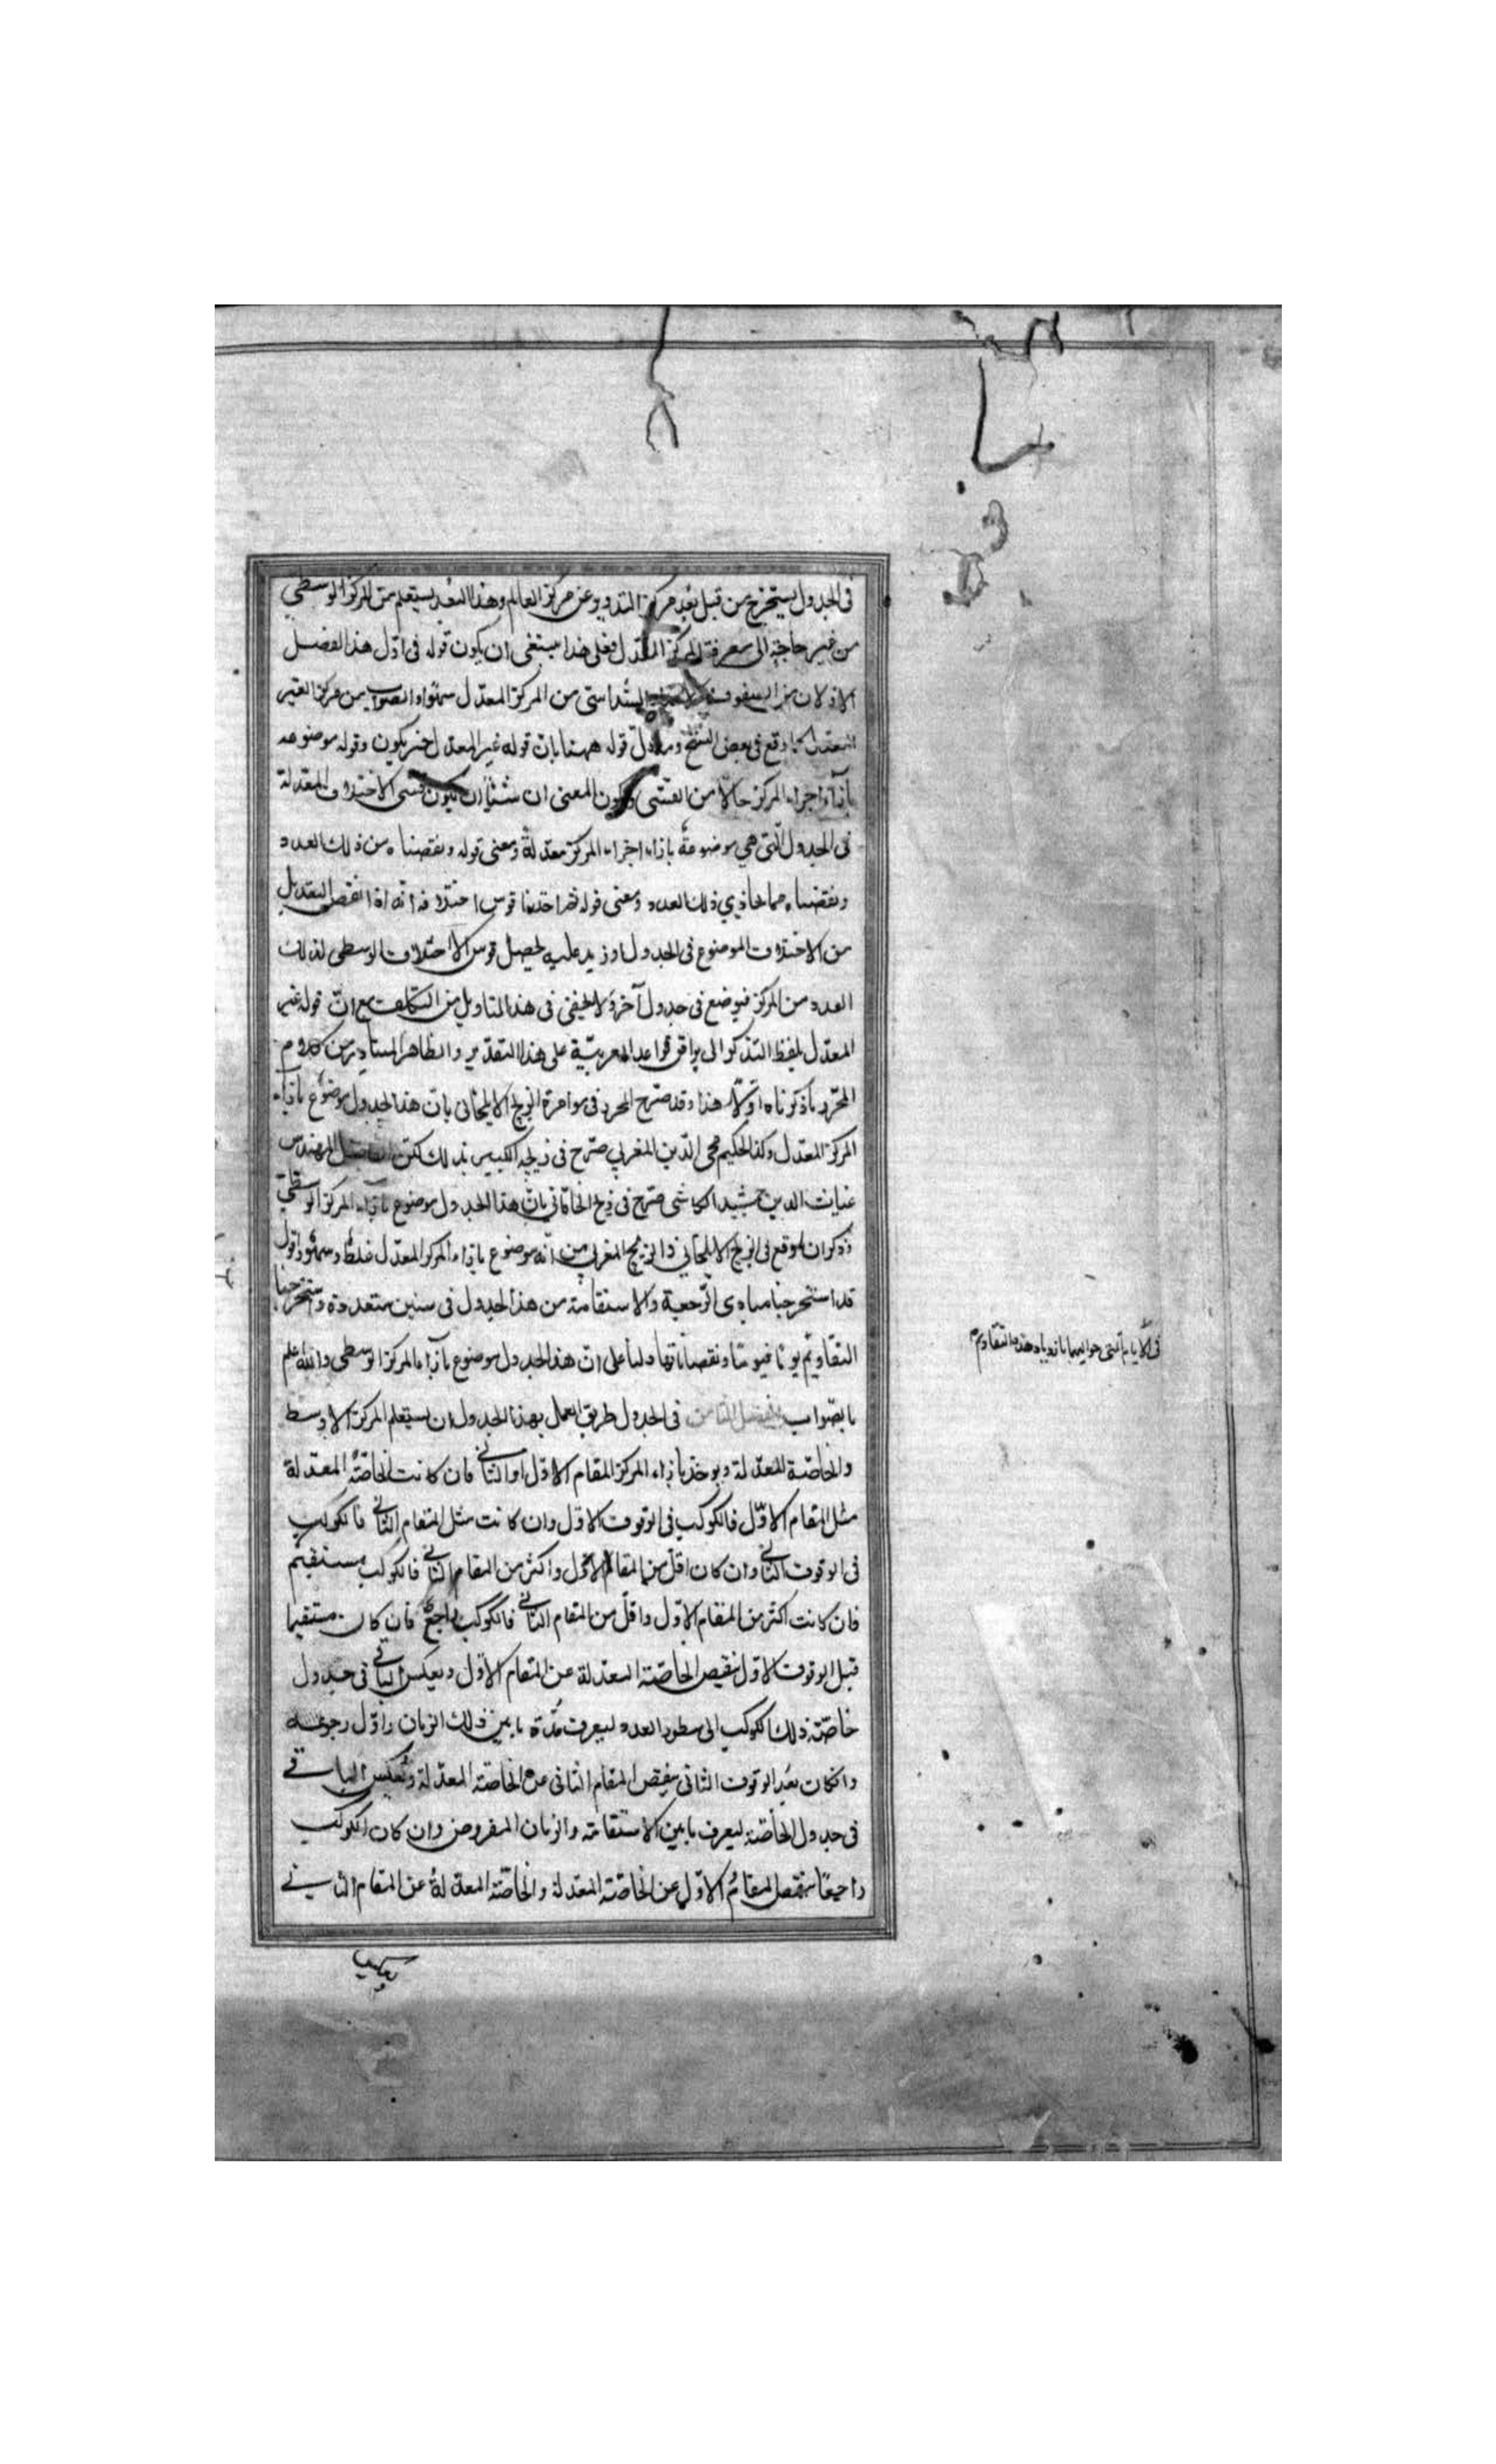 فى الجدول يستخرج من قبل بعد مركز التدوير عن مركز العالم وهذا البعد يستعلم من المركز الوسطى
من غير حاجة الى معرفة المركز المعدل فعلى هذا ينبغى ان يكون قوله فى اول هذا الفصل
من المركز المعدل سهوا والصواب من مركز الغير
المعدل كما وقع فى بعض النسخ قوله ههنا بان قوله غير المعدل خبر يكون وقوله موضوعه
بازاء اجزاء المركز حالا من القسى ويكون المعنى ان شئنا ان يكون قسى الاختلاف المعدلة
فى الجدول التى هى موضوعة بازاء اجزاء المركز معدلة ومعنى قوله ونقصناه من ذلك العدد
ونقصناه مما يحاذي ذلك العدد ومعنى قوله قوس اختلافه انه اذا نقص التعديل
من الاختلاف الموضوع فى الجدول او زيد عليه يحصل قوس الاختلاف الوسطى لذلك
العدد من المركز فيوضع فى جدول آخر ولا يخفى فى هذا التاويل من التكلف مع ان قوله غير
المعدل بلفظ التذكير لا يوافق قواعد العربية على هذا التقدير والظاهر المتبادر من كلام
المحرر ما ذكرناه اولا هذا وقد صرح المحرر فى مؤامرة الزيج الايلخانى بان هذا الجدول موضوع بازاء
المركز المعدل وكذا الحكيم محى الدين المغربي صرح فى زيجه الكبير بذلك لكن الفاضل المهندس
غياث الدين جمشيد الكاشى صرح فى زيج الخاقاني بان هذا الجدول موضوع بازاء المركز الوسطى
وذكر ان ما وقع فى الزيج الايلخاني والزيج المغربي من انه موضوع بازاء المركز المعدل غلط وسهو واقول
قد استخرجنا مبادى الرجعة والاستقامة من هذا الجدول فى سنين متعددة واستخرجنا
التقاويم يوما فيوما ونقصاناتها دلنا على ان هذا الجدول موضوع بازاء المركز الوسطى والله اعلم
بالصواب الفصل الثامن فى الجدول طريق العمال بهذا الجدول ان يستعلم المركز الاوسط
والخاصة المعدلة ويوخذ بازاء المركز المقام الاول او الثاني فان كانت الخاصة المعدلة
مثل المقام الاول فالكوكب فى الوقوف الاول وان كانت مثل المقام الثاني فالكوكب
فى الوقوف الثاني وان كان اقل من المقام الاول واكثر من المقام الثاني فالكوكب مستقيم
فان كانت اكثر من المقام الاول واقل من المقام الثاني فالكوكب راجع فان كان مستقيما
قبل الوقوف الاول نقيص الخاصة المعدلة عن المقام الاول ويعكس الباقى فى جدول
خاصة ذلك الكوكب الى سطور العدد ليعرف مدة ما بين ذلك الزمان واول رجوعه
وان كان بعد الوقوف الثانى ينقص المقام الثانى عن الخاصة المعدلة ويعكس الباقى
فى جدول الخاصة ليعرف ما بين الاستقامة والزمان المفروض وان كان الكوكب
راجعا ينقص المقام الاول عن الخاصة المعدلة والخاصة المعدلة عن المقام الثاني
ويعكس
فى الايام التى حواليهما بازدياد هذه التقاويم